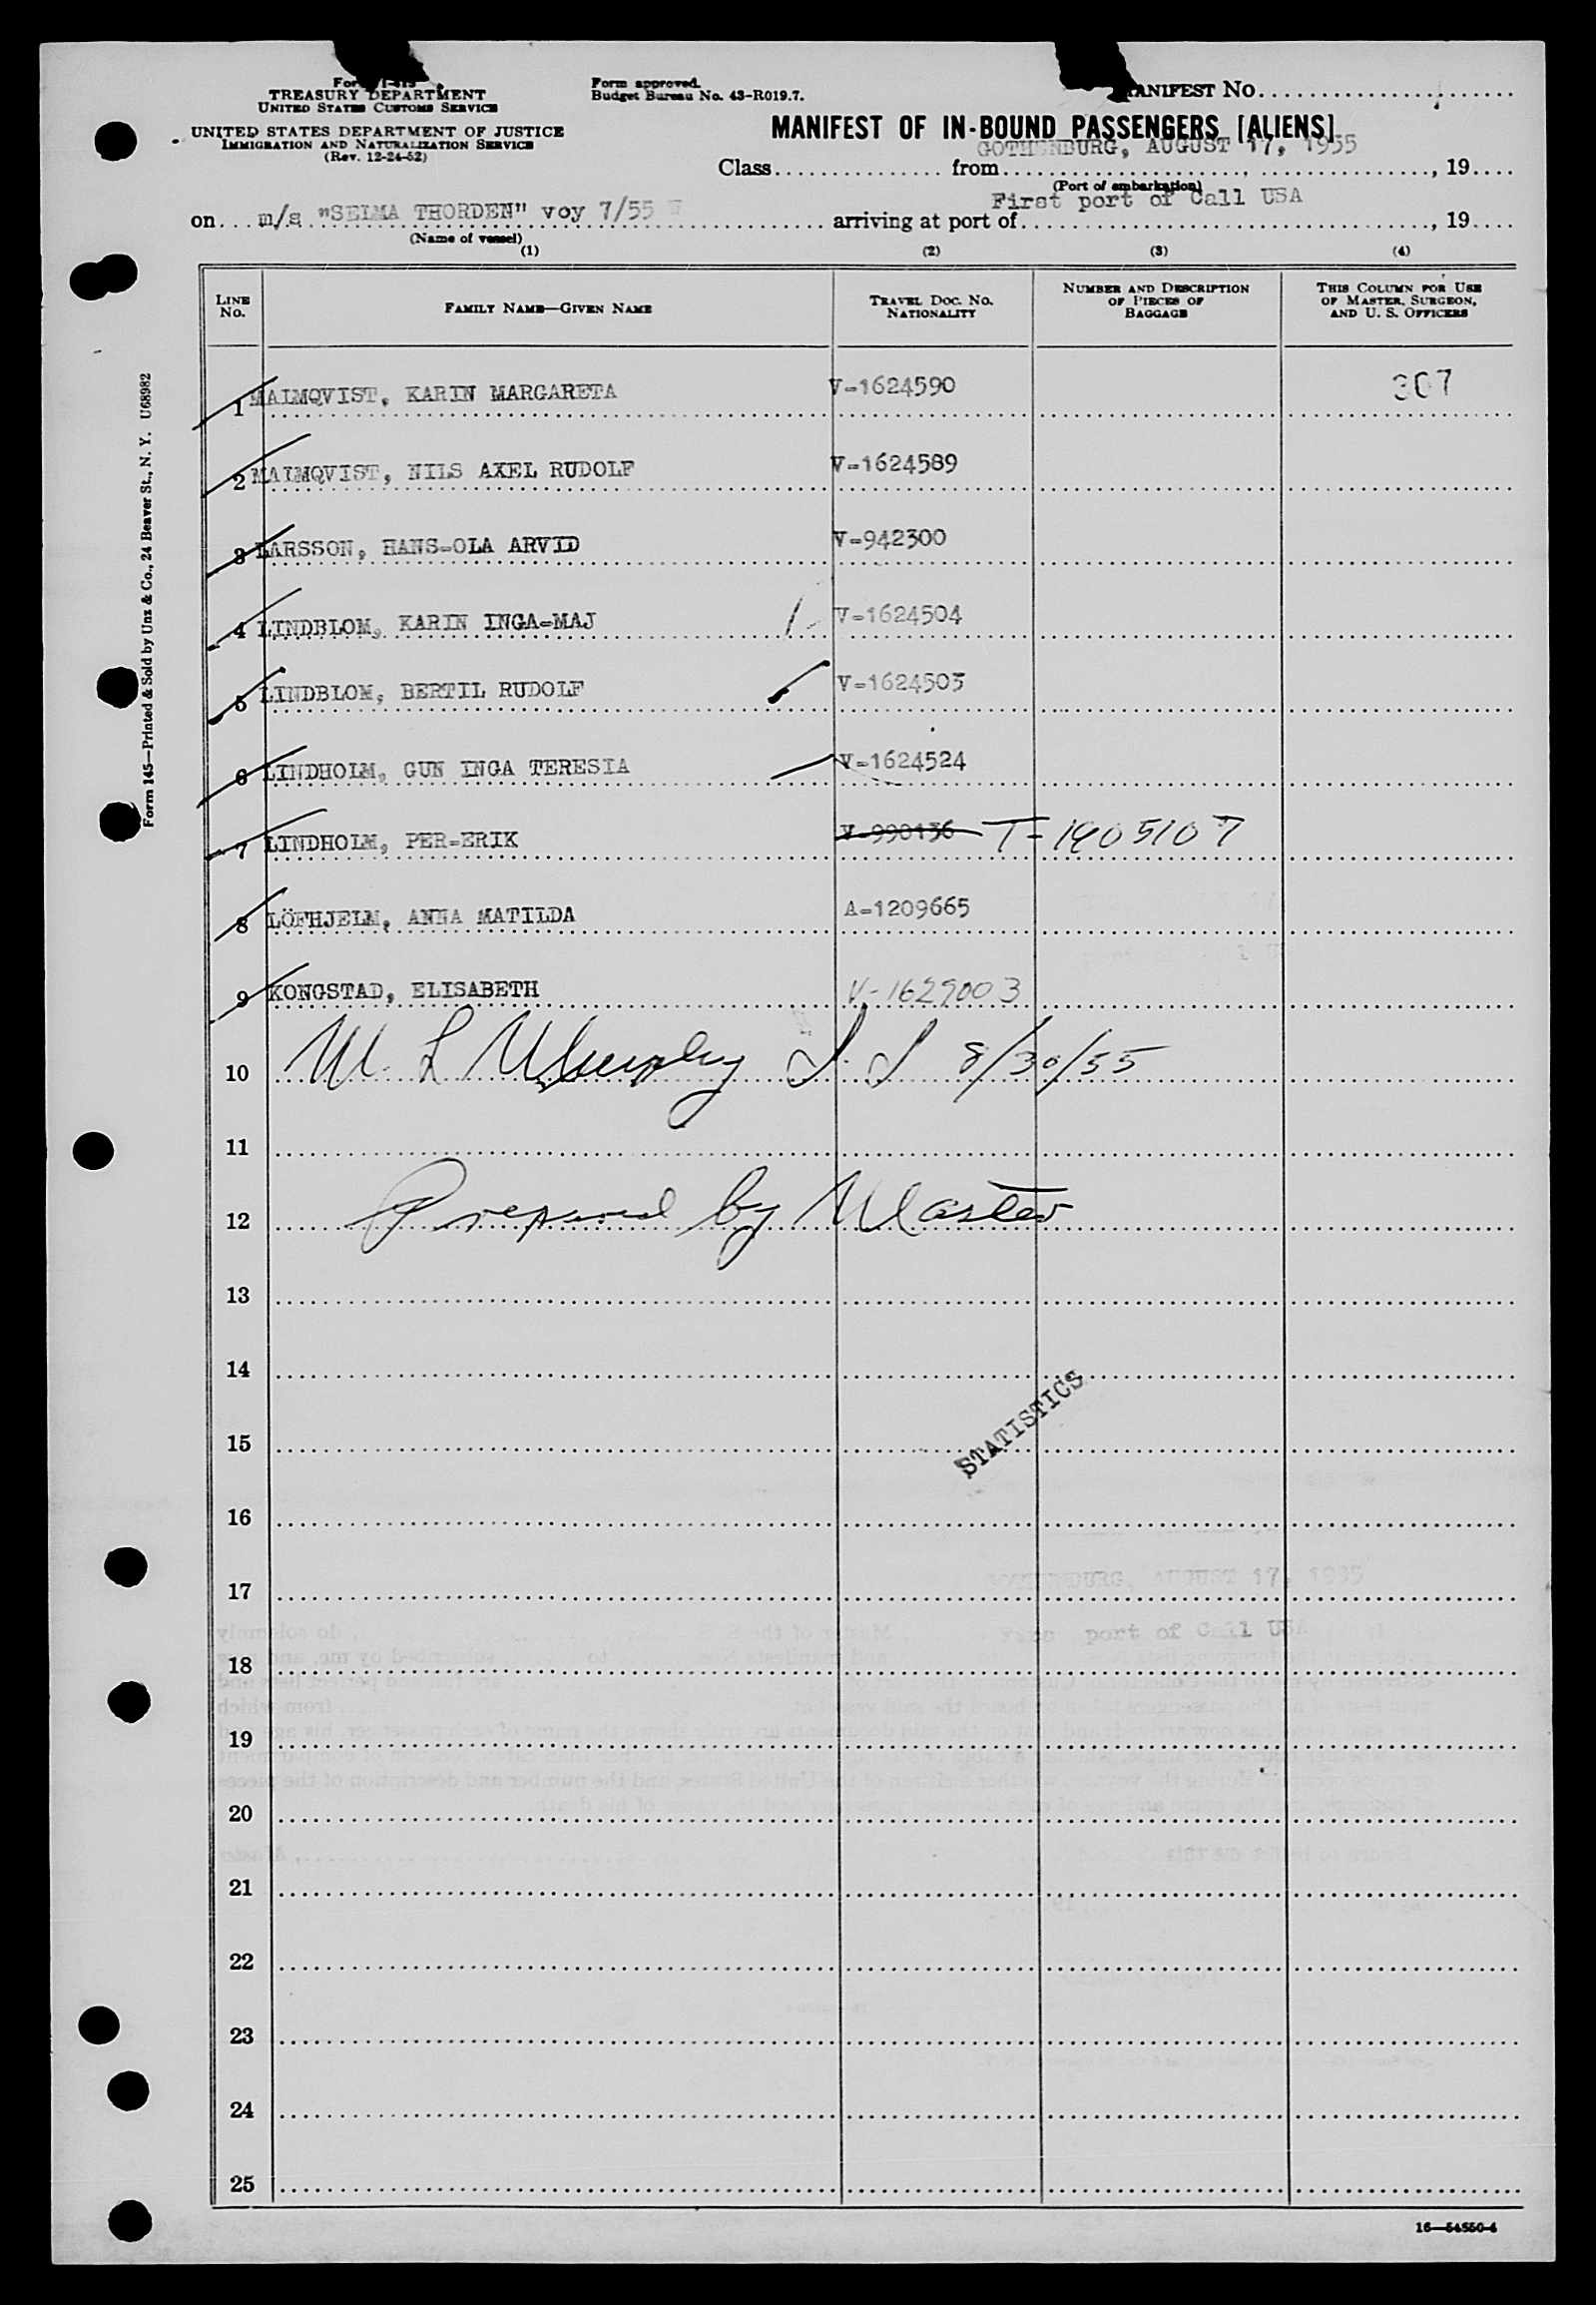 TREASURY DEPARTMENT
UNITED STATES CUSTOMS SERVICE
UNITED STATES DEPARTMENT OF JUSTICE
IMMIGRATION AND NATURALIZATION SERVICE
(Rev. 12-24-52)
Form approved.
Budget Bureau No. 43-R019.7.
MANIFEST NO.
MANIFEST OF IN-BOUND PASSENGERS [ALIENS]
Class from GOTHENBURG, AUGUST 17, 1955, 19
(Port of embarkation)
on m/s "SELMA THORDEN" voy 7/55 arriving at port of First port of Call USA, 19
(Name of vessel)
(1) (2) (3) (4)
LINE NO. FAMILY NAME—GIVEN NAME TRAVEL DOC. NO. NATIONALITY NUMBER AND DESCRIPTION OF PIECES OF BAGGAGE THIS COLUMN FOR USE OF MASTER, SURGEON, AND U. S. OFFICERS
1 MALMQVIST, KARIN MARGARETA V-1624590 307
2 MALMQVIST, NILS AXEL RUDOLF V-1624589
3 LARSSON, HANS-OLA ARVID V-942300
4 LINDBLOM, KARIN INGA-MAJ V-1624504
5 LINDBLOM, BERTIL RUDOLF V-1624503
6 LINDHOLM, GUN INGA TERESIA V-1624524
7 LINDHOLM, PER-ERIK V-990136 T-1905107
8 LÖFHJELM, ANNA MATILDA A-1209665
9 KONGSTAD, ELISABETH V-1629003
10 M. L Murphy I. I 8/30/55
11
12 Prepared by Master
13
14
STATISTICS
15
16
17
18
19
20
21
22
23
24
25
16—54550-4
Form 145—Printed & Sold by Unz & Co., 24 Beaver St., N. Y. U68982